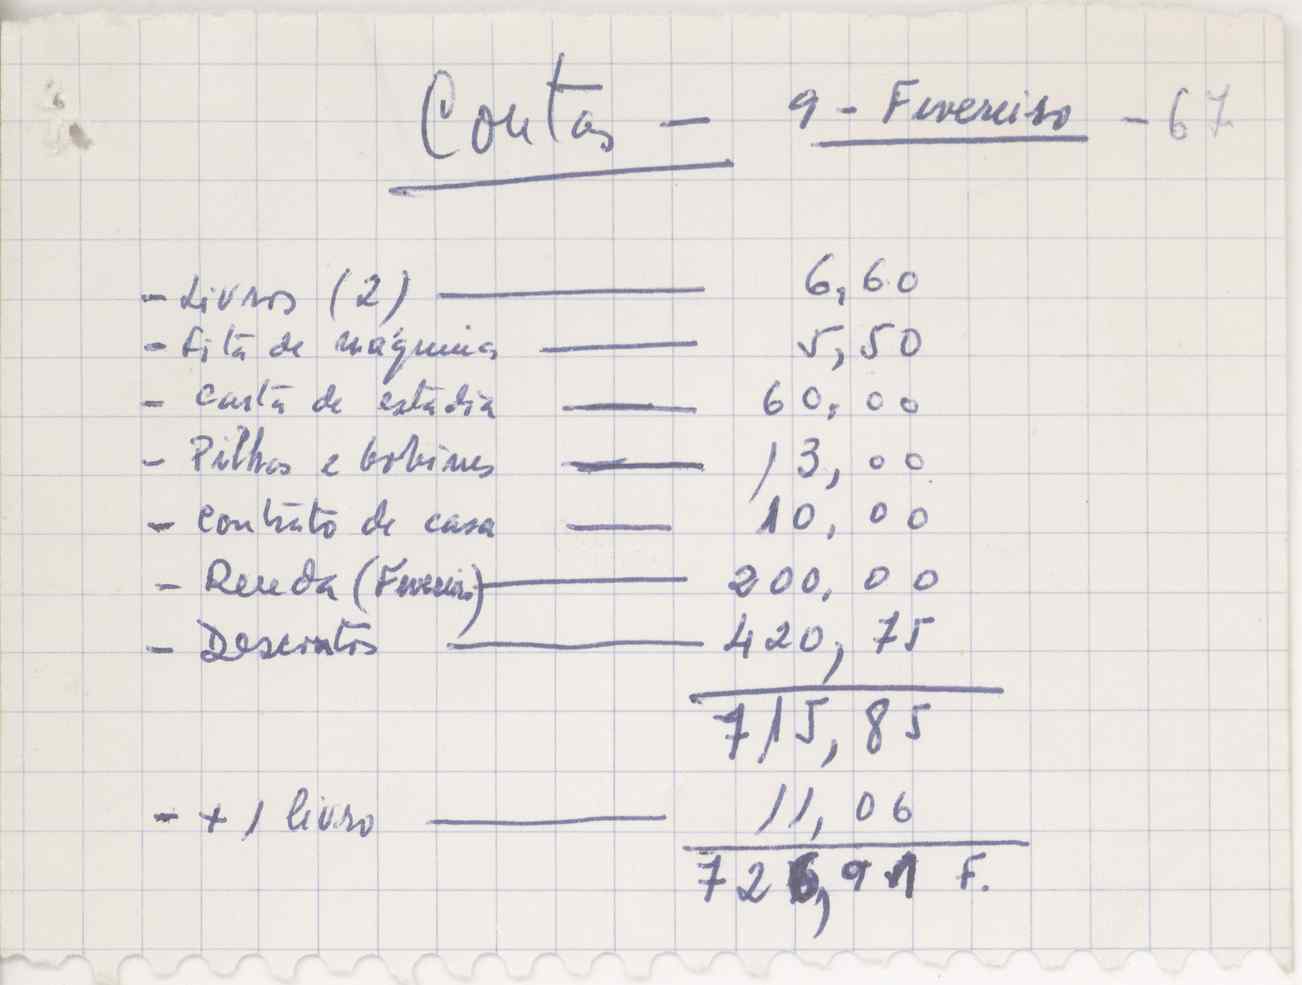 Contas - 9 - Fevereiro - 67
- Livros (2) 6,60
- Fita de máquina 5,50
- Carta de estadia 60,00
- Pilhas e bobines 13,00
- Contrato de casa 10,00
- Renda (Fevereiro) 200,00
- Descontos 420,75
715,85
- + 1 livro 11,06
726,91 F.